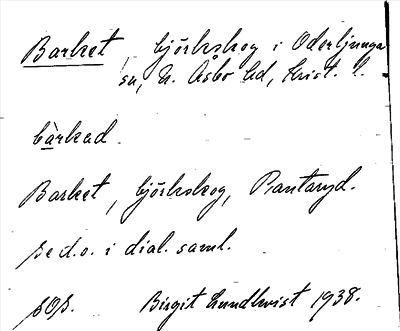 Barket, björkskog i Oderljunga
sn, N. Åsbo hd, Krist. l.
bàrkad.
Barket, björkskog, Rantaryd.
se d.o. i dial. saml.
SOS. Birgit Lundkvist 1938.